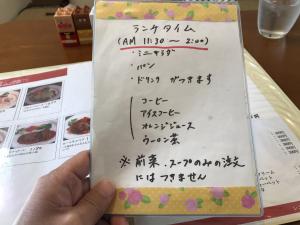 ランチタイム
(AM 11:30 ～ 2:00)
・ミニサラダ
・パン
・ドリンク がつきます
コーヒー
アイスコーヒー
オレンジジュース
ウーロン茶
※ 前菜、スープのみの注文
にはつきません